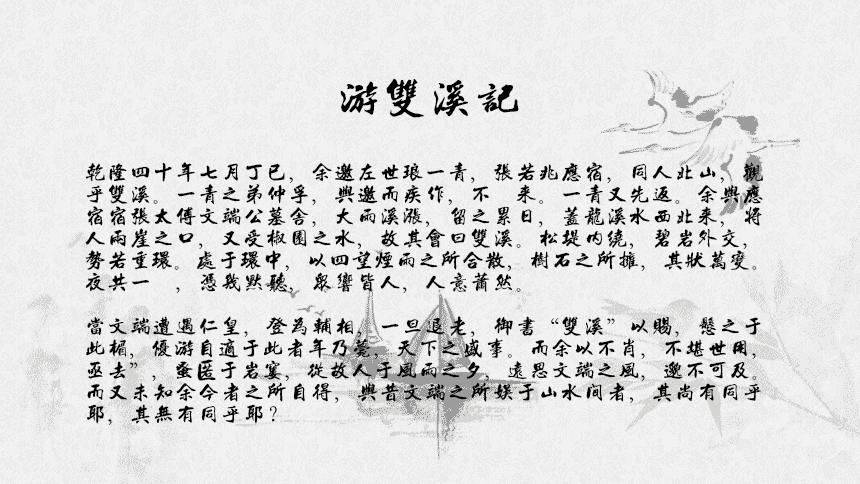 游雙溪記
乾隆四十年七月丁巳,余邀左世琅一青,張若兆應宿,同人北山,觀
乎雙溪。一青之弟仲孚,與邀而疾作,不 来。一青又先返。余與應
宿宿張太傅文端公墓舍,大雨溪漲,留之累日,蓋龍溪水西北来,將
人兩崖之口,又受椒園之水,故其會曰雙溪。松堤内绕,碧岩外交,
勢若重環。處于環中,以四望煙雨之所合散,樹石之所擁,其狀萬变。
夜共一 ,憑幾默聽,眾響皆人,人意蕭然。
當文端遭遇仁皇,登為輔相,一旦退老,御書“雙溪”以賜,懸之于
此楣,優游自適于此者年乃薨,天下之盛事。而余以不肖,不堪世用,
亟去”,蚤匿于岩穸,從故人于風雨之夕,遠思文端之風,邈不可及。
而又未知余今者之所自得,與昔文端之所娱于山水间者,其尚有同乎
耶,其無有同乎耶?